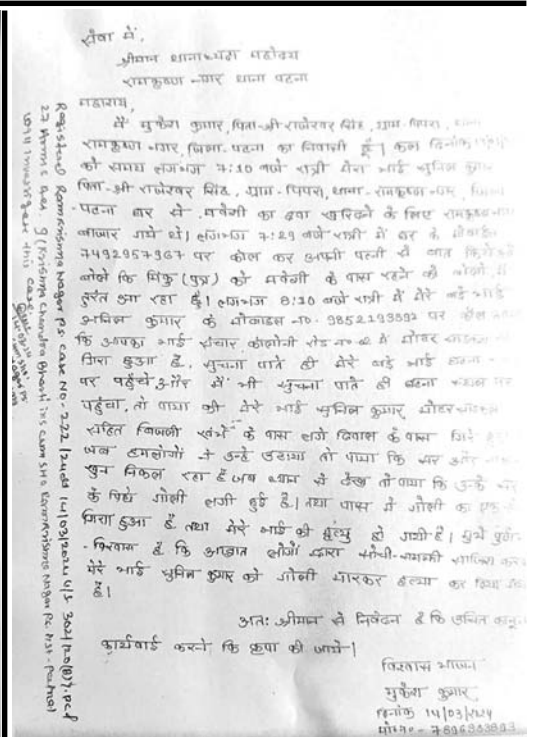 सेवा में,
श्रीमान थानाध्यक्ष महोदय
रामकृष्ण नगर थाना पटना
महाशय,
मैं मुकेश कुमार, पिता-श्री राजेश्वर सिंह, ग्राम-पिपरा, थाना
रामकृष्ण नगर, जिला-पटना का निवासी हूँ। कल दिनांक
को समय लगभग 7:10 बजे रात्री मेरा भाई सुनिल कुमार
पिता-श्री राजेश्वर सिंह, ग्राम-पिपरा, थाना-रामकृष्ण नगर, जिला
-पटना घर से मवेशी का दवा खरिदने के लिए रामकृष्ण नगर
बाजार गये थे। लगभग 7:29 बजे रात्री में घर के मोबाईल
7492957967 पर कॉल कर अपनी पत्नी से बात किये और
बोले कि मिंकु (पुत्र) को मवेशी के पास रहने को बोलो, मैं
तुरंत आ रहा हुँ। लगभग 8:10 बजे रात्री में मेरे बड़े भाई
अनिल कुमार के मोबाइल नं०. 9852193892 पर कॉल
कि आपका भाई संचार कॉलोनी रोड नं० में मोटर साइकिल
गिरा हुआ है, सुचना पाते ही मेरे बड़े भाई घटना
पर पहुँचे, और मैं भी सुचना पाते ही घटना स्थल पर
पहुंचा, तो पाया की मेरे भाई सुनिल कुमार मोटर साइकिल
सहित बिजली खंभे के पास लगे दिवाल के पास गिरे
जब हमलोगों ने उन्हें उठाया तो पाया कि सर और
खुन निकल रहा है जब ध्यान से देखा तो पाया कि उनके सर
के पिछे गोली लगी हुई है। तथा पास में गोली का एक
गिरा हुआ है तथा मेरे भाई की मृत्यु हो गयी है। मुझे पुर्ण
-विश्वास है कि अज्ञात लोगों द्वारा सोची-समझी साजिश कर
मेरे भाई सुनिल कुमार को गोली मारकर हत्या कर दिया
है।
अतः श्रीमान से निवेदन है कि उचित कानूनी
कार्यवाई करने कि कृपा की जाये।
विश्वास भाजन
मुकेश कुमार
दिनांक 14/03/2024
मो०नं०-7896983893
Registered Ramkrishna Nagar P.S. Case No-222/24 dt 14/03/2024 u/s 302/120(B) I.P.C &
27 Arms Act. (Krishna Chandra Bharti ins cum SHO Ramkrishna Nagar P.S. Dist-Patna)
will investigate this case.